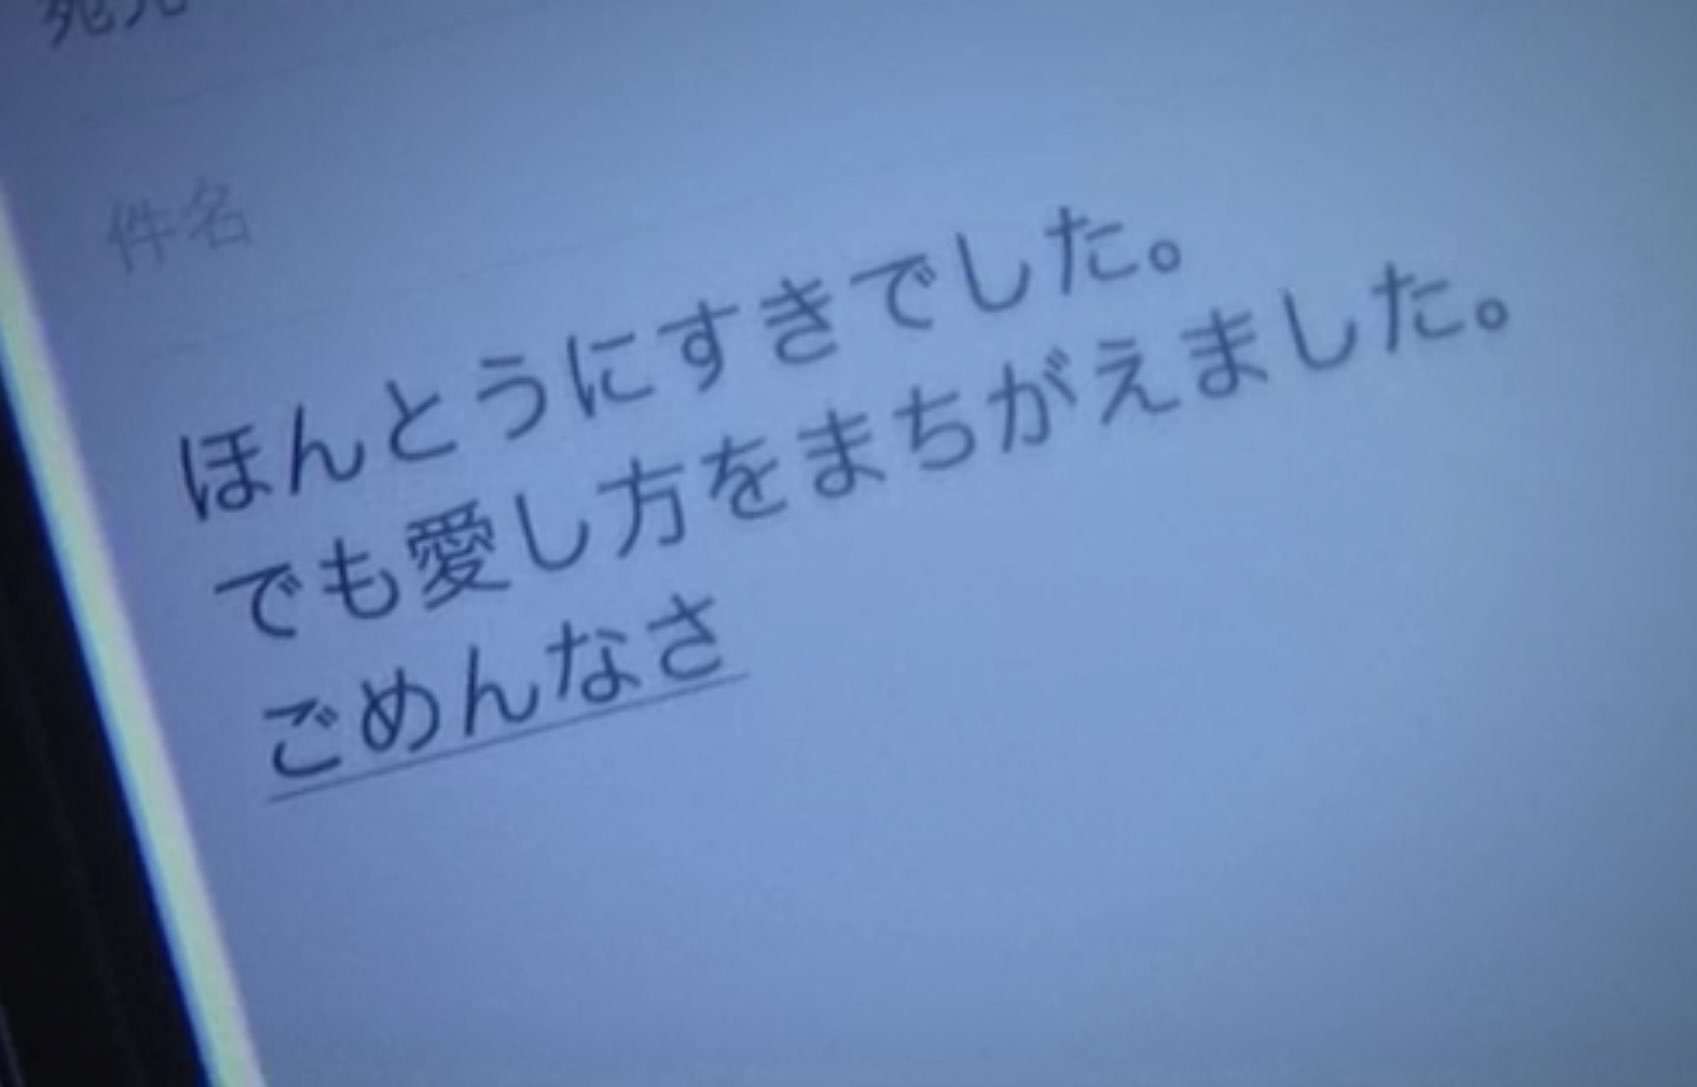 宛先
件名
ほんとうにすきでした。
でも愛し方をまちがえました。
ごめんなさ